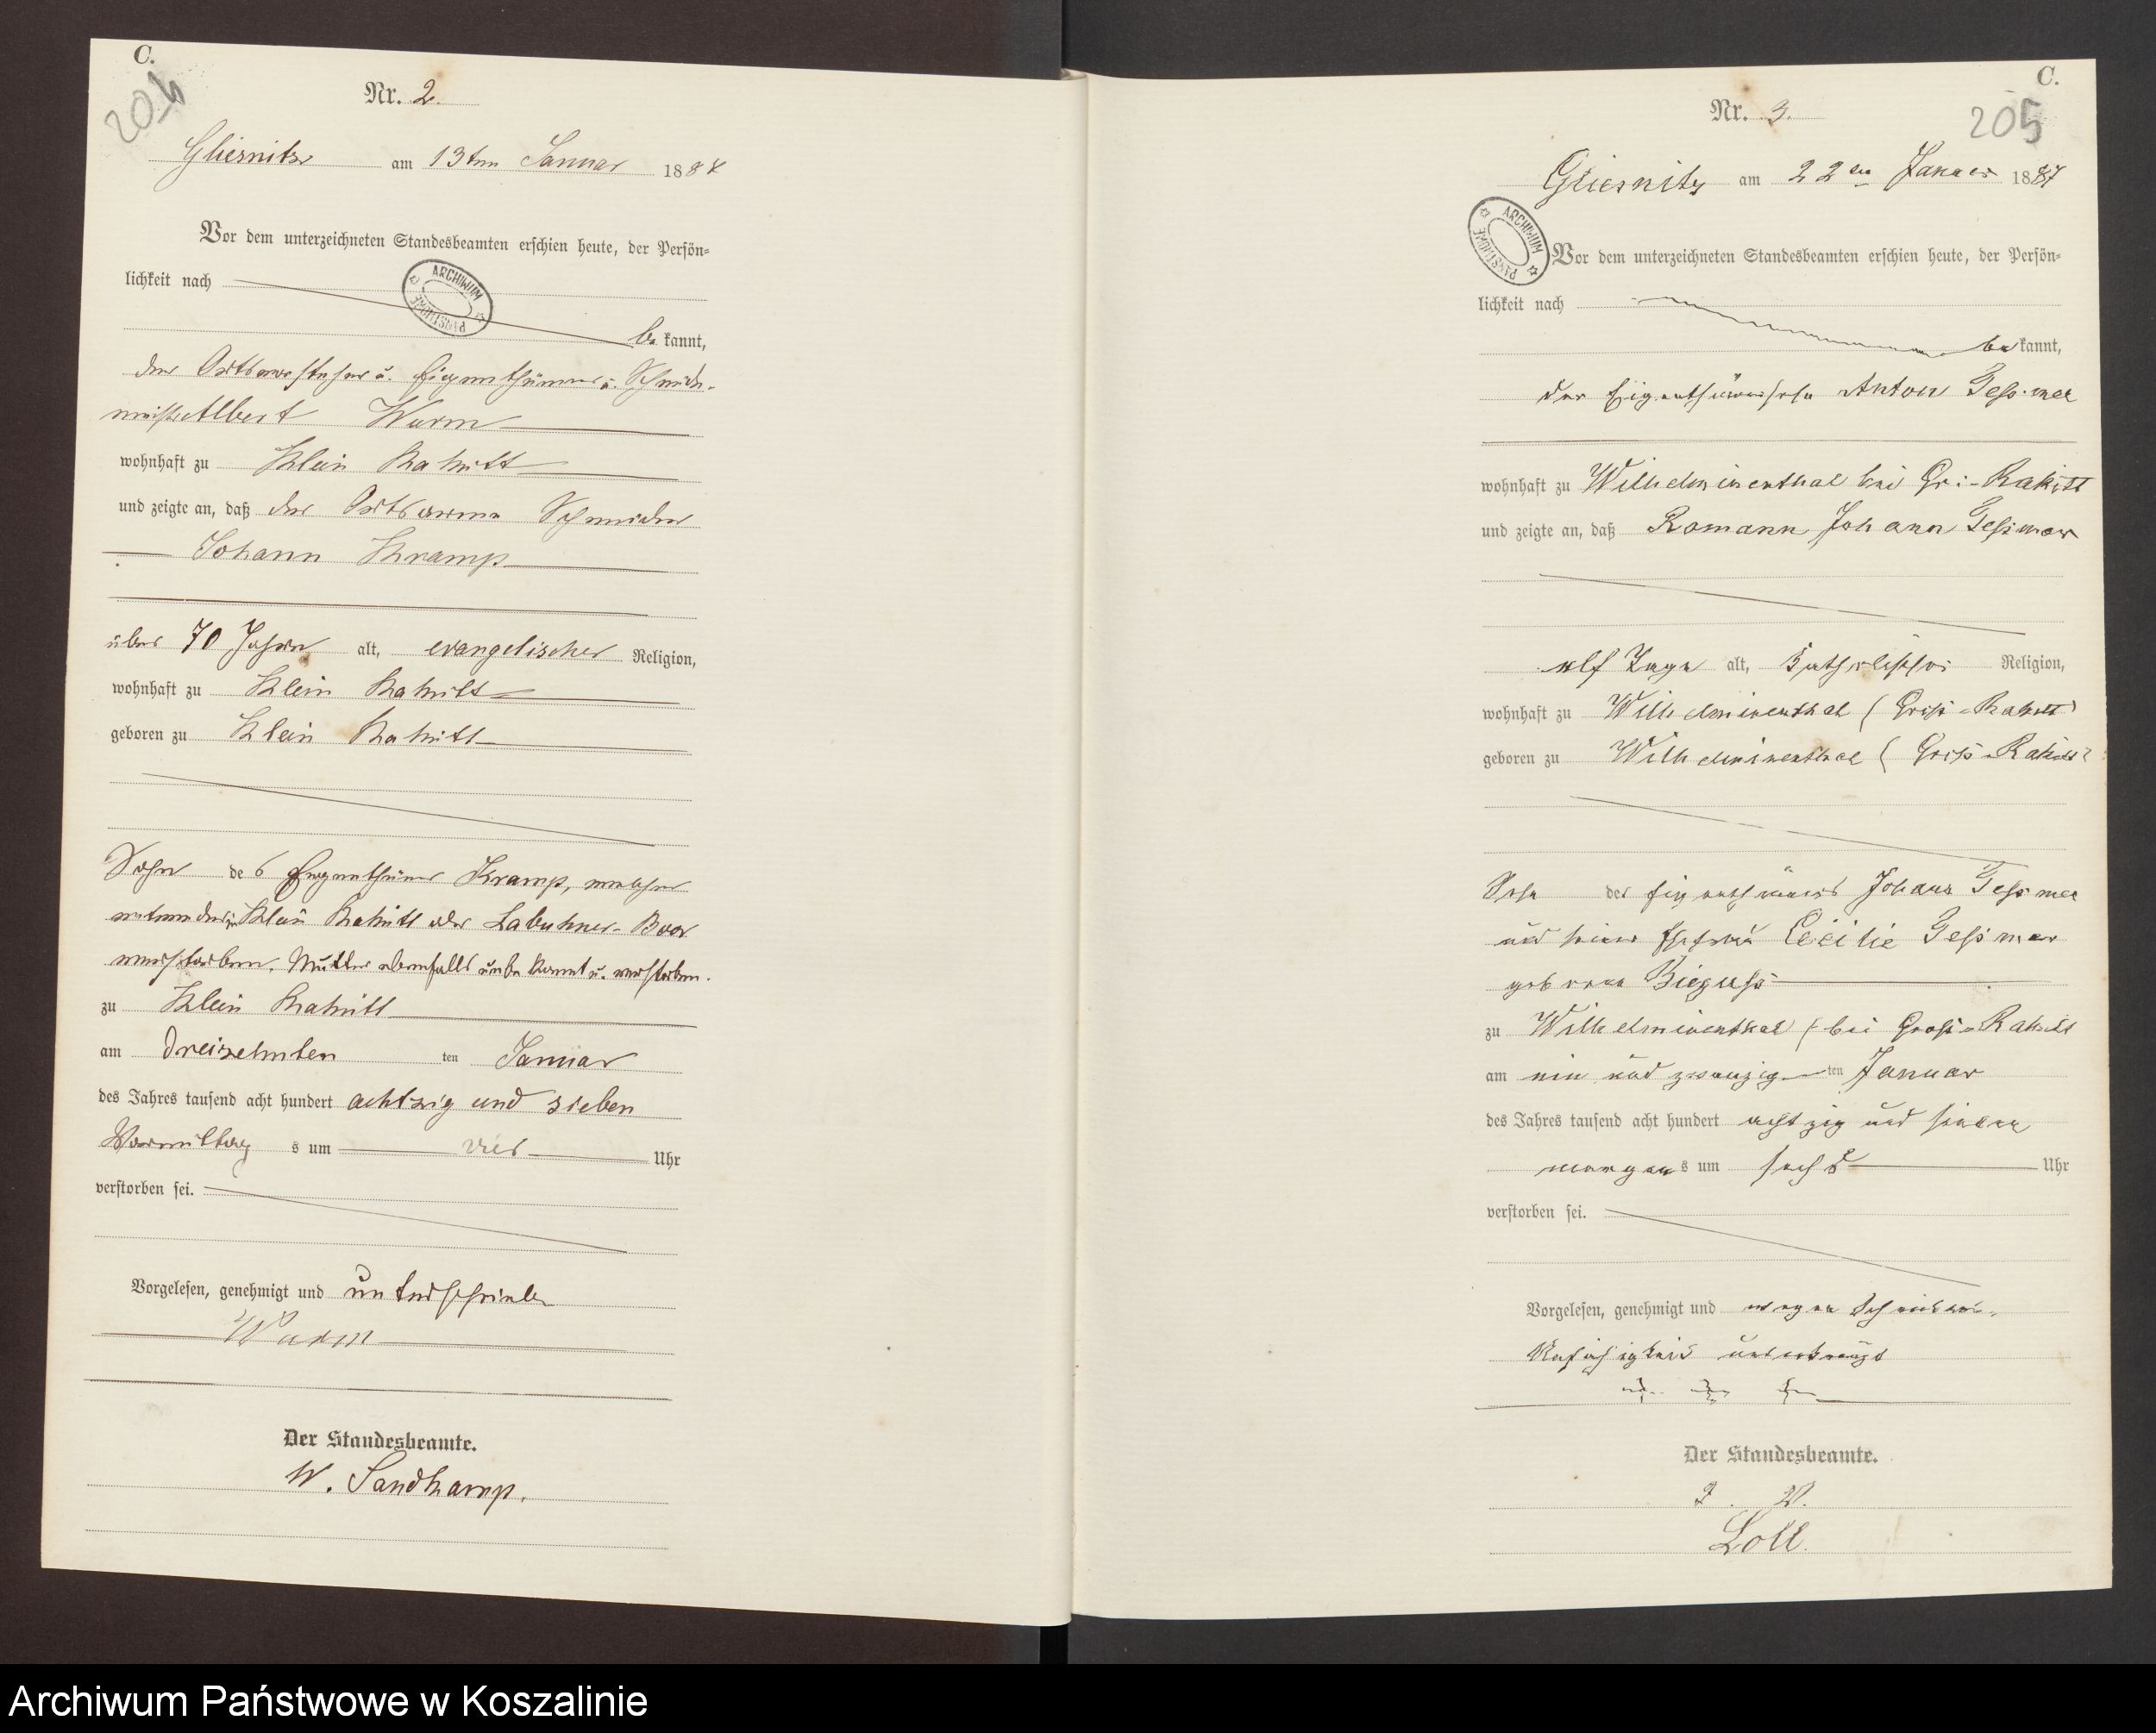 C.
204
Nr. 2.
Gliesnitz am 13ten Januar 188
Vor dem unterzeichneten Standesbeamten erschien heute, der Persön=
lichkeit nach
ARCHIWUM PAŃSTWOWE
be kannt,
der Ortsvorsteher u. Eigenthümer u. Schmiede-
meister Albert Warm
wohnhaft zu Klein Rakitt
und zeigte an, daß der Ortsarme Schneider
Johann Kramp
über 70 Jahre alt, evangelischer Religion,
wohnhaft zu Klein Rakitt
geboren zu Klein Rakitt
Sohn des Eigenthümer Kramp, welcher
entweder in Klein Rakitt oder Labuhner-Boor
verstorben. Mutter ebenfalls unbekannt u. verstorben.
zu Klein Rakitt
am dreizehnten ten Januar
des Jahres tausend acht hundert achtzig und sieben
Vormittag s um vier Uhr
verstorben sei.
Vorgelesen, genehmigt und unterschrieben
Warm
Der Standesbeamte.
W. Sandkamp.
C.
205
Nr. 3.
Gliesnitz am 22ten Januar 1887
ARCHIWUM PAŃSTWOWE
Vor dem unterzeichneten Standesbeamten erschien heute, der Persön=
lichkeit nach
be kannt,
der Anton Gessmer
wohnhaft zu Wilhelminenthal bei Gr:-Rakitt
und zeigte an, daß Romann Johann Gessmer
elf Tage alt, katholischer Religion,
wohnhaft zu Wilhelminenthal (Groß-Rakitt)
geboren zu Wilhelminenthal (Groß-Rakitt)
Sohn des Eigenthümers Johann Gessmer
und seiner Ehefrau Cecilie Gessmer
geborene
zu Wilhelminenthal (bei Groß-Rakitt
am ein und zwanzig ten Januar
des Jahres tausend acht hundert achtzig und sieben
morgen s um sechs Uhr
verstorben sei.
Vorgelesen, genehmigt und wegen Schreibens-
Unfähigkeit unterkreuzt
+ + +
Der Standesbeamte.
I. V.
Loll.
Archiwum Państwowe w Koszalinie